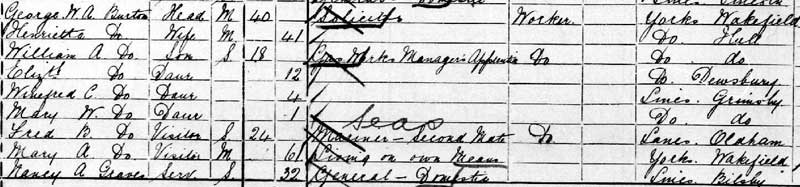 George W. A. Burton Head M 40 Solicitor Worker Yorks Wakefield
Henrietta Do Wife M 41 Do. Hull
William A. Do Son S 18 Gas Works Manager's Apprentice Do Do. do
Elizth Do Daur 12 Do. Dewsbury
Winifred C. Do Daur 4 Lincs. Grimsby
Mary W. Do Daur 1 Do. do
Seas
Fred B. Do Visitor S 24 Mariner - Second Mate Do Lancs. Oldham
Mary A. Do. Visitor M 61 Living on own Means Yorks. Wakefield
Nancy A Graves Serv. S 32 General - Domestic Lincs Bilsby